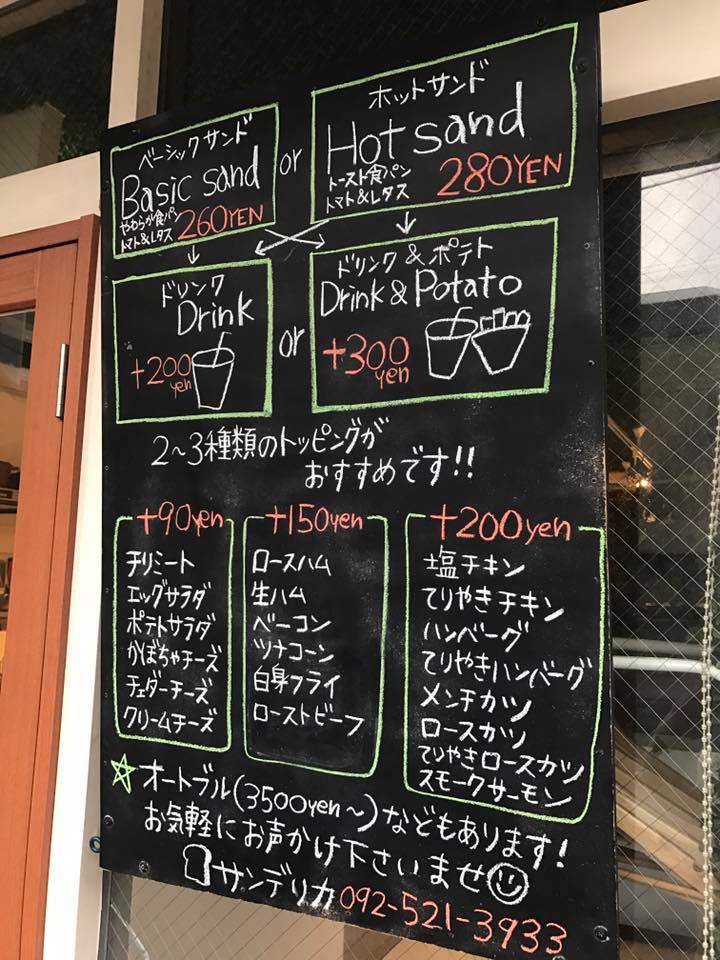 ベーシックサンド
Basic sand
やわらか食パン
トマト&レタス 260YEN
or
ホットサンド
Hot sand
トースト食パン
トマト&レタス 280YEN
ドリンク
Drink
+200
yen
or
ドリンク & ポテト
Drink & Potato
+300
yen
2~3種類のトッピングが
おすすめです!!
+90yen
チリミート
エッグサラダ
ポテトサラダ
かぼちゃチーズ
チェダーチーズ
クリームチーズ
+150yen
ロースハム
生ハム
ベーコン
ツナコーン
白身フライ
ローストビーフ
+200yen
塩チキン
てりやきチキン
ハンバーグ
てりやきハンバーグ
メンチカツ
ロースカツ
てりやきロースカツ
スモークサーモン
☆オートブル(3500yen~)などもあります!
お気軽にお声かけ下さいませ
サンデリカ 092-521-3933